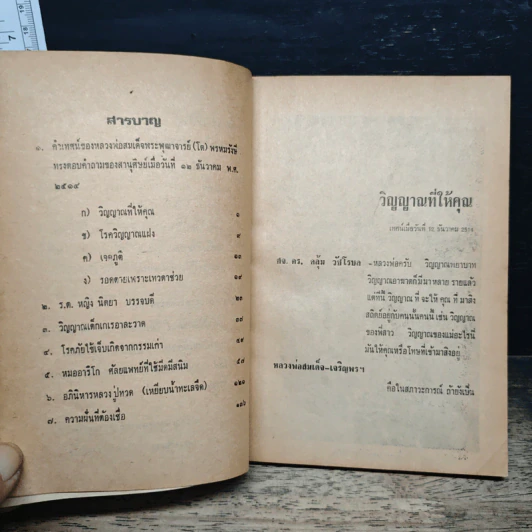 สารบาญ
๑. คำเทศน์ของหลวงพ่อสมเด็จพระพุฒาจารย์ (โต) พรหมรังษี
ทรงตอบคำถามของสานุศิษย์เมื่อวันที่ ๑๒ ธันวาคม พ.ศ.
๒๕๑๔
ก) วิญญาณที่ให้คุณ ๑
ข) โรควิญญาณแฝง ๙
ค) เจตภูติ
ง) รอดตายเพราะเทวดาช่วย
๒. ร.ต. หญิง นิตยา บรรจบดี ๒๐
๓. วิญญาณเด็กเกเรอาละวาด
๔. โรคภัยไข้เจ็บเกิดจากกรรมเก่า
๕. หมออารีโก ศัลยแพทย์ที่ใช้มีดมีสนิม
๖. อภินิหารหลวงปู่ทวด (เหยียบน้ำทะเลจืด) ๑๒๐
๗. ความฝันที่ต้องเชื่อ
วิญญาณที่ให้คุณ
เทศน์เมื่อวันที่ 12 ธันวาคม 2514
-หลวงพ่อครับ วิญญาณพยาบาท
วิญญาณอาฆาตก็มีมาหลาย รายแล้ว
แต่ทีนี้ วิญญาณ ที่ จะให้ คุณ ที่ มาสิง
สถิตย์อยู่กับคนนั้นคนนี้ เช่น วิญญาณ
ของพี่สาว วิญญาณของแม่อะไรนี่
มันให้คุณหรือโทษที่เข้ามาสิงอยู่
หลวงพ่อสมเด็จ-เจริญพรฯ
คือในสภาวะการณ์ ถ้ายังเป็น